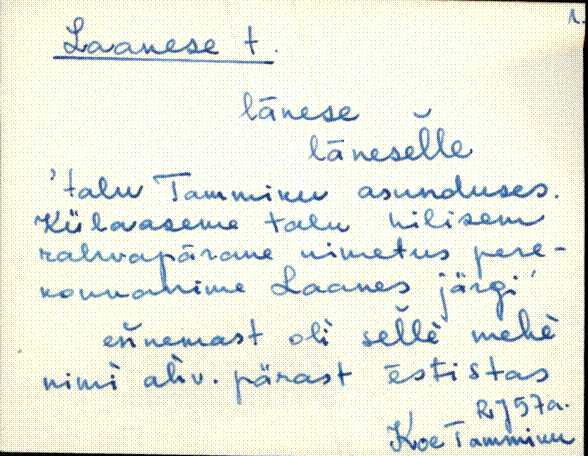 1.
Laanese t.
lānese
lānesel̆le
'talu Tammiku asunduses.
Külaaseme talu hilisem
rahvapärane nimetus pere-
konnanime Laanes järgi'
eńnemast oli sel̆lè mehè
nimi
pärast ēstistas
57a.
Koe Tammiku